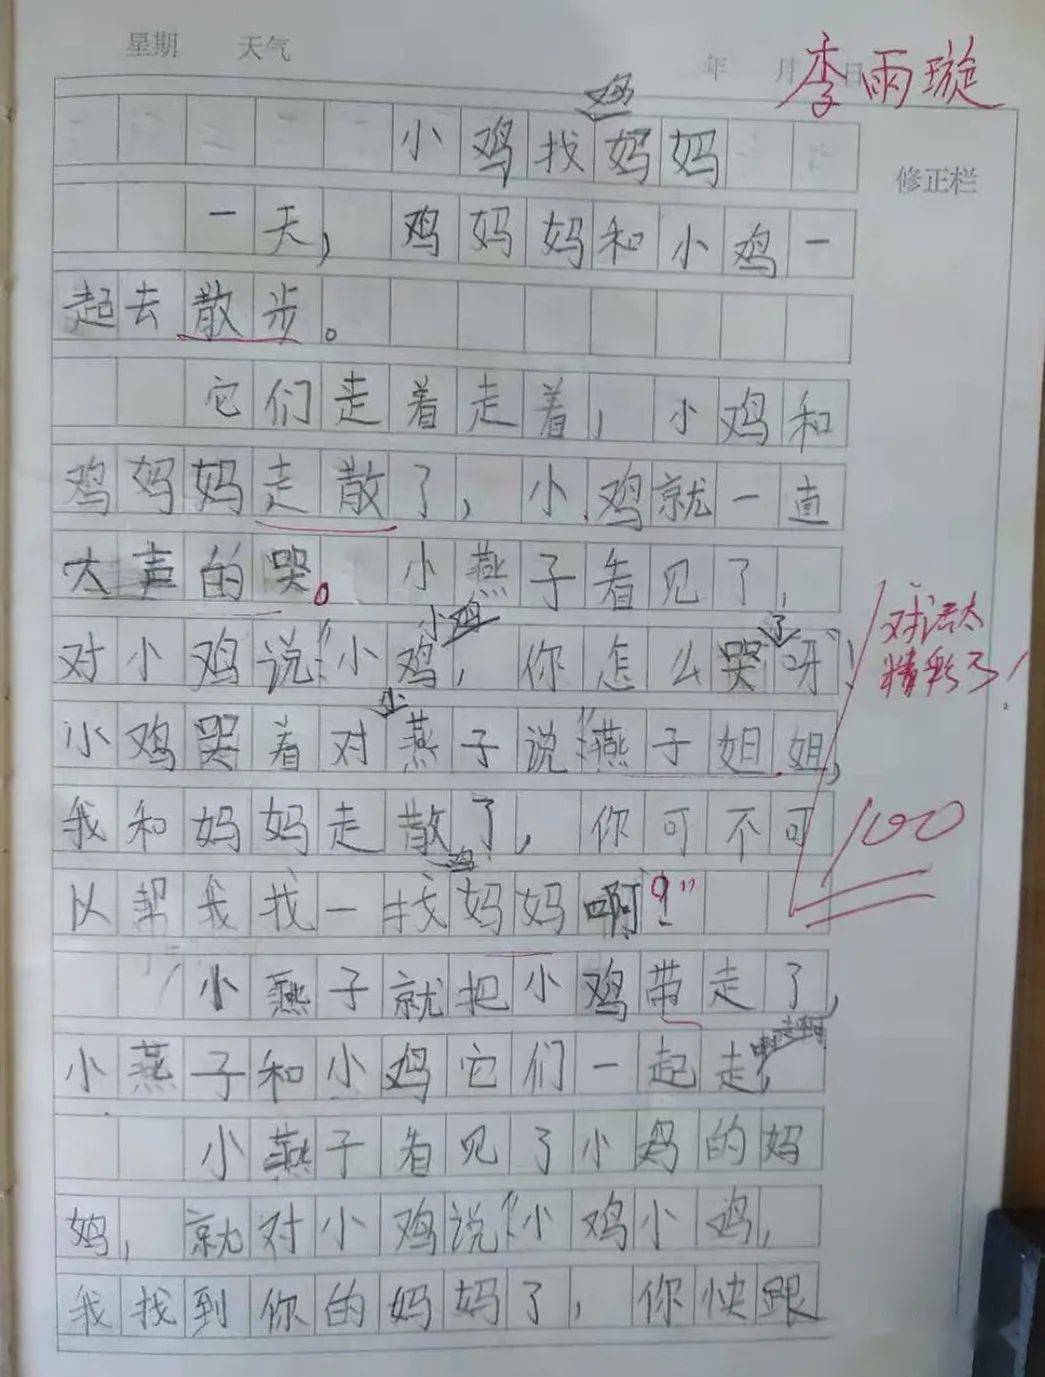 星期 天气 年 月 日 李雨璇
鸡
小鸡找妈妈
修正栏
一天，鸡妈妈和小鸡一
起去散步。
它们走着走着，小鸡和
鸡妈妈走散了，小鸡就一直
大声的哭。小燕子看见了，
对小鸡说：“小鸡，你怎么哭了呀！
小鸡
对话太
精彩了！
小鸡哭着对小燕子说：“燕子姐姐，
我和妈妈走散了，你可不可
100
以帮我找一找鸡妈妈啊？”
小燕子就把小鸡带走了，
小燕子和小鸡它们一起走，
小燕子看见了小鸡的妈
妈，就对小鸡说：“小鸡小鸡，
我找到你的妈妈了，你快跟